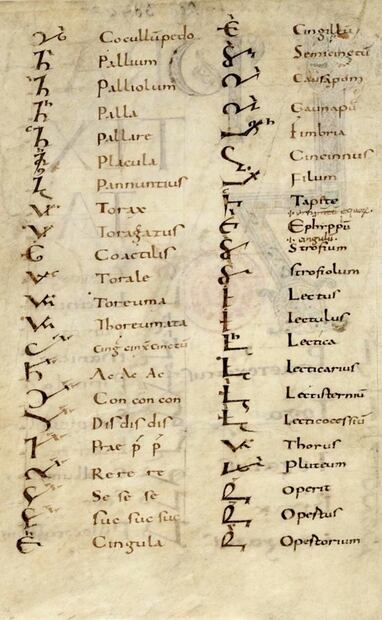 Cocullumpedo
Pallium
Palliolum
Palla
Pallare
Placula
Pannuntius
Torax
Toragatus
Coactilis
Torale
Toreuma
Thoreumata
Ac Ac Ac
Con con con
Dis dis dis
Prae p̄ p̄
Re re re
Se se se
suc suc suc
Cingula
Cingillū
Semicinctū
Gaunapū
Fimbria
Cincinnus
Filum
Tapite
Ephippiū
Strofium
strofiolum
Lectus
Lectulus
Lectica
Lecticarius
Lectisterniū
Thorus
Pluteum
Operit
Opertus
Opertorium